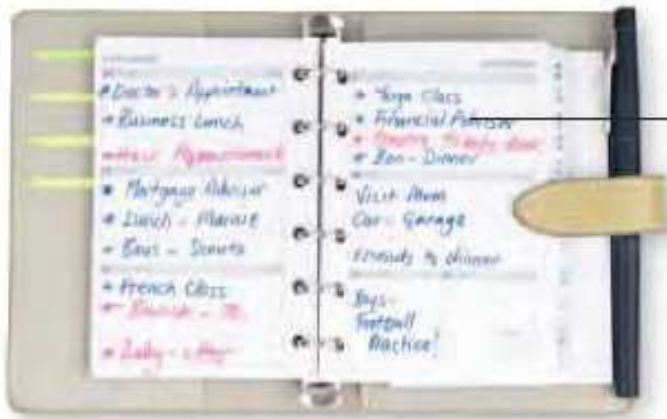 • Doctor's Appointment
• Business Lunch
• Hair Appointment
• Mortgage Advisor
• Lunch -
• Boys - Scouts
• French Class
•
• Baby-sitter
• Yoga Class
• Financial Advisor
•
• Ben - Dinner
Visit Mum
Car - Garage
Friends to dinner
Boys -
Football
Practice!